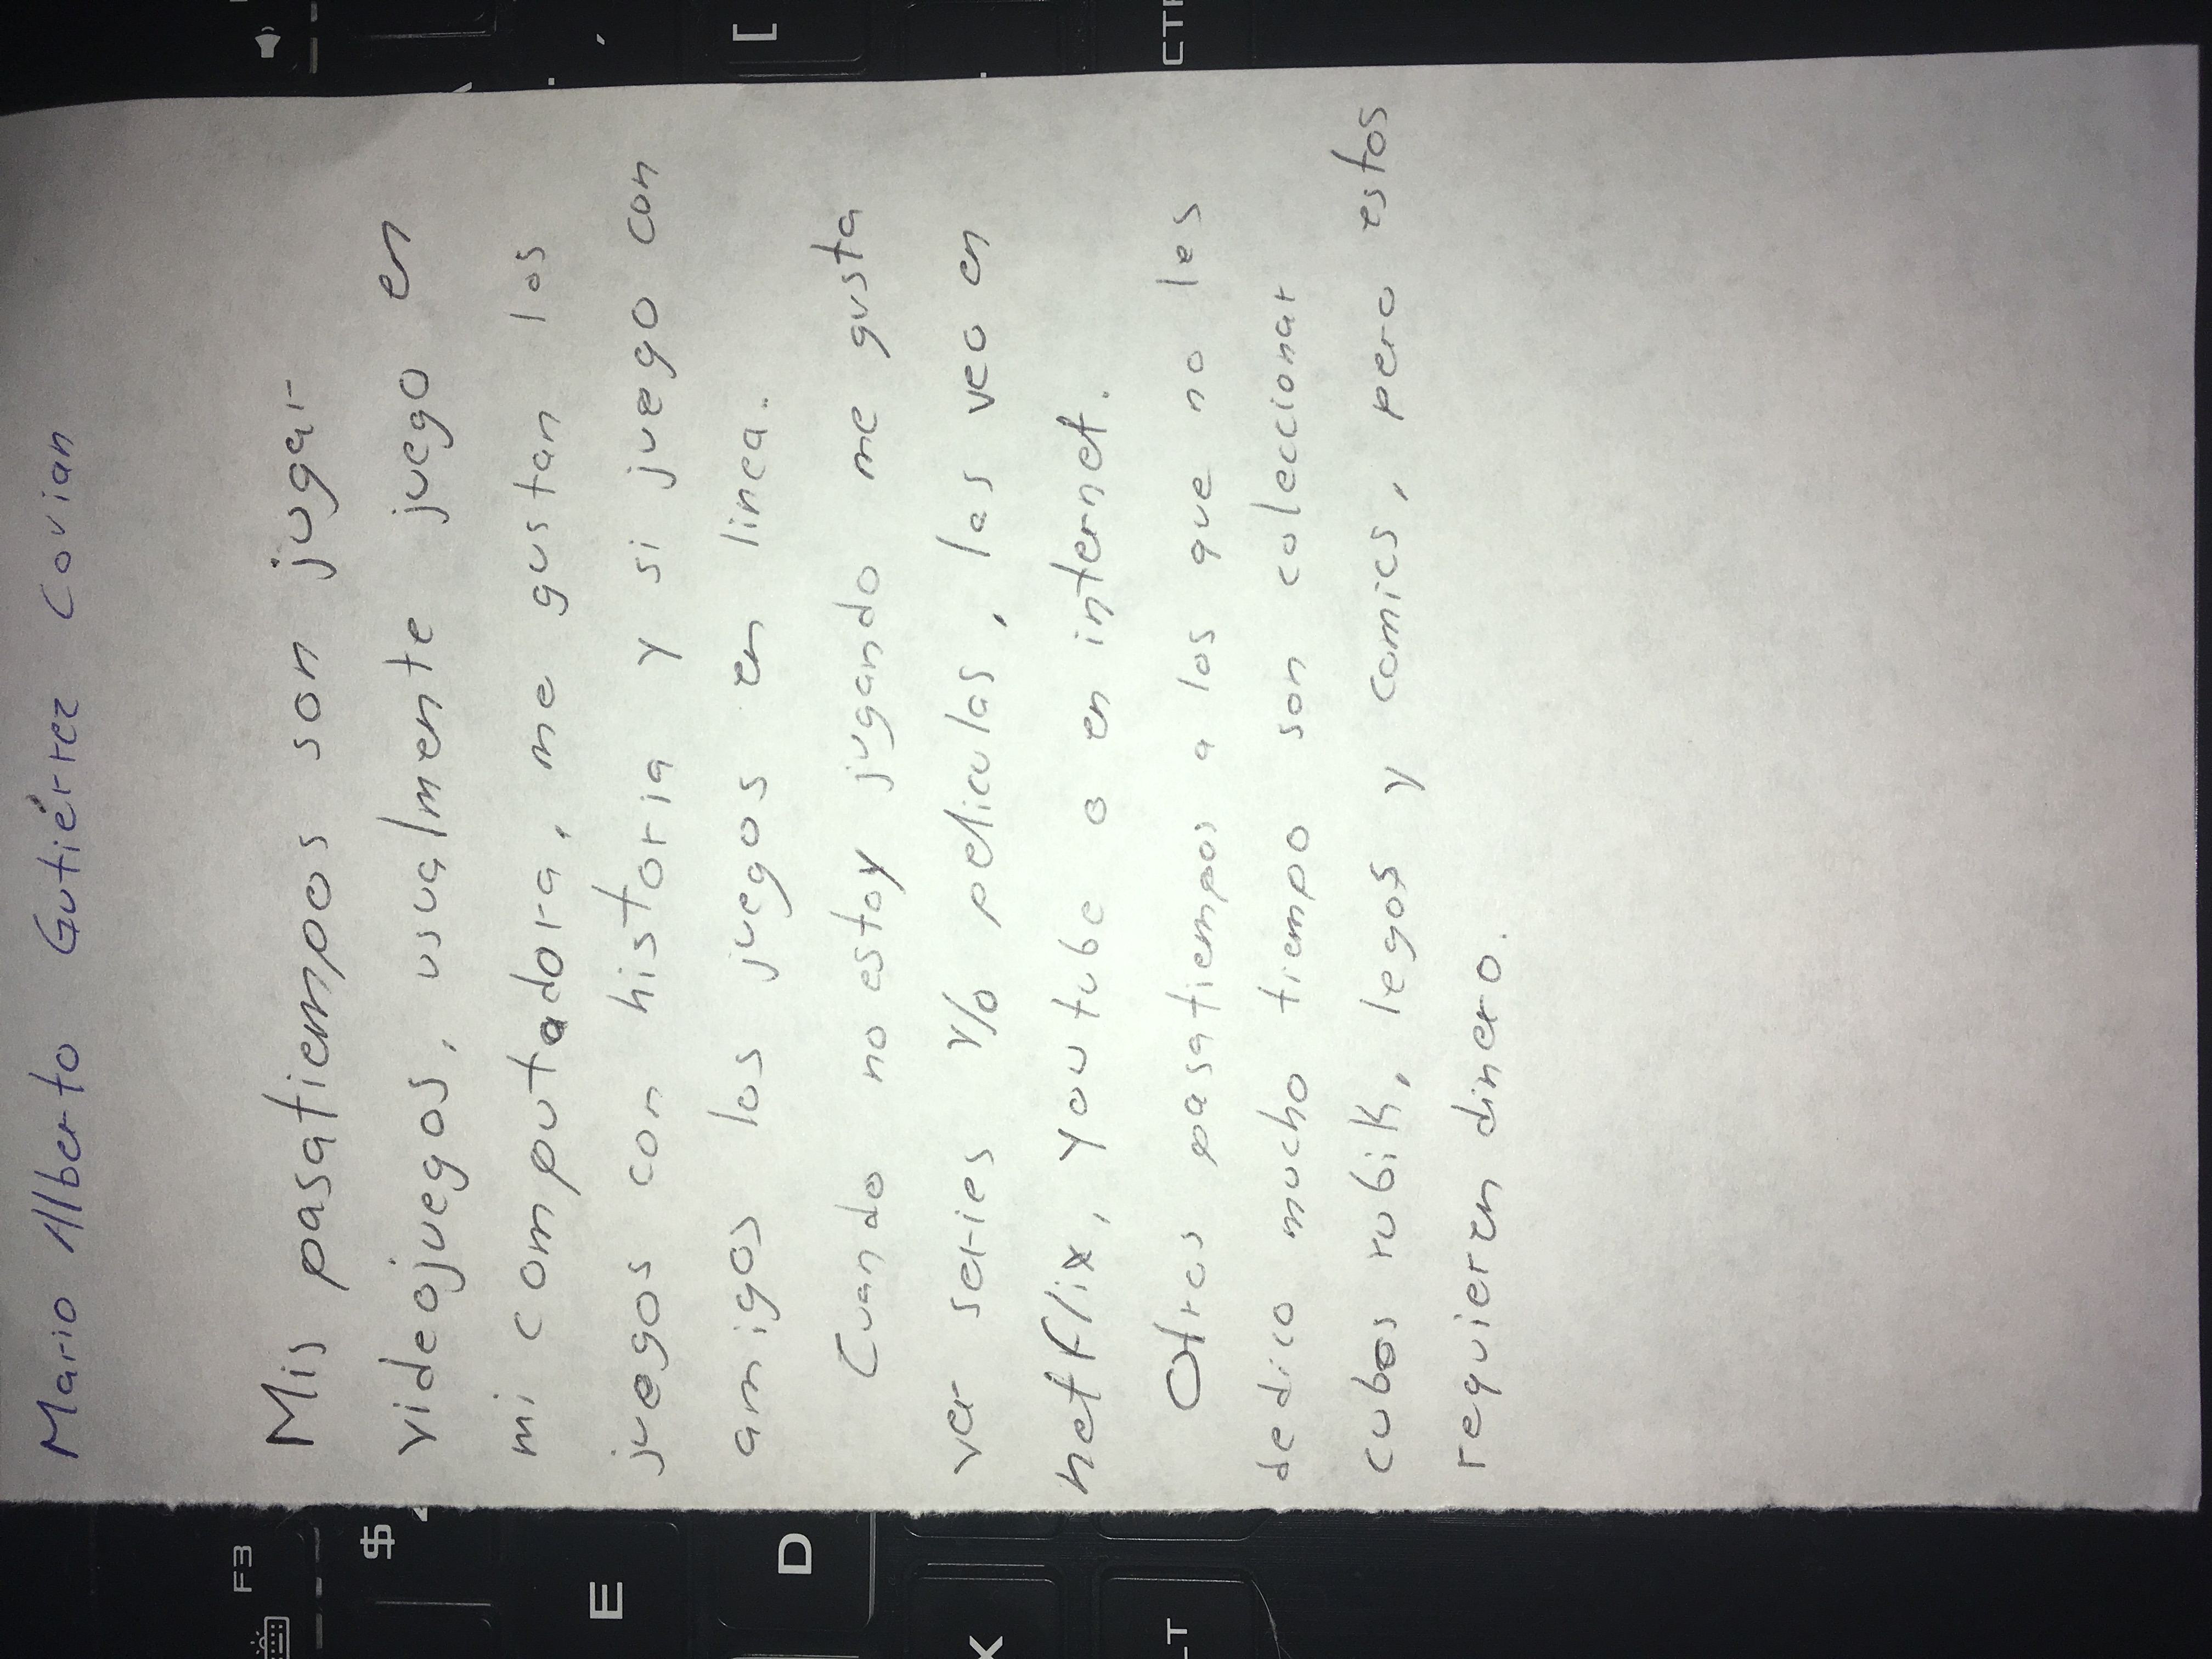 Mario Alberto Gutiérrez Covian
Mis pasatiempos son jugar
videojuegos, usualmente juego en
mi computadora, me gustan los
juegos con historia y si juego con
amigos los juegos en linea.
Cuando no estoy jugando me gusta
ver series y/o peliculas, las veo en
netflix, youtube o en internet.
Otros pasatiempos a los que no les
dedico mucho tiempo son coleccionar
cubos rubik, legos y comics, pero estos
requieren dinero.
F3
$
E
D
X
LT
[
CTR